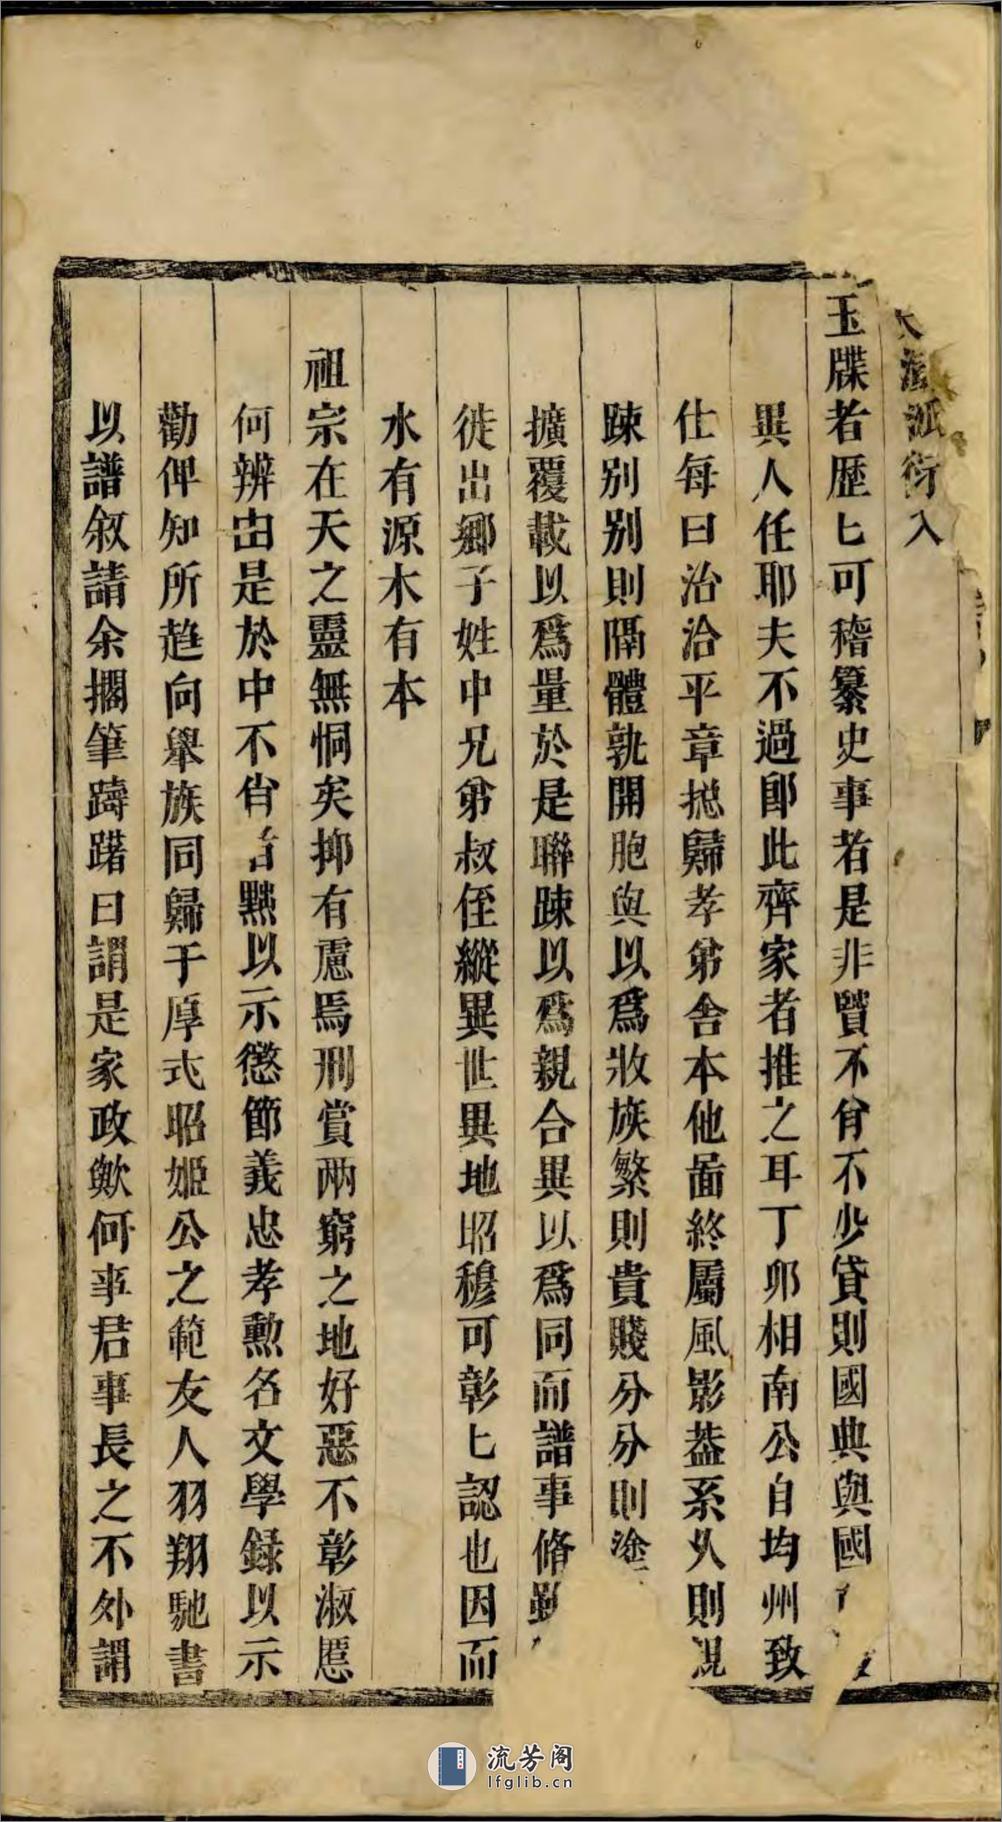 潢派衍入
玉牒者歷匕可稽纂史事者是非賢不肖不少貸則國典與國
異人任耶夫不過卽此齊家者推之耳丁卯相南公自均州致
仕每曰治洽平章揔歸孝弟舍本他啚終屬風影葢系乆則
踈别别則隔體孰開胞與以爲收族繁則貴賤分分則塗
擴覆載以爲量於是聯踈以爲親合異以爲同而譜事脩
徙出鄉子姓中兄弟叔侄縱異世異地昭穆可彰匕認也因而
水有源木有本
祖宗在天之靈無恫矣抑有慮焉刑賞兩窮之地好惡不彰淑慝
何辨由是於中不肖者黜以示懲節義忠孝勳名文學録以示
勸俾知所趋向舉族同歸于厚式昭姬公之範友人羽翔馳書
以譜叙請余擱筆躊躇曰謂是家政歟何事君事長之不外謂
流芳阁
lfglib.cn